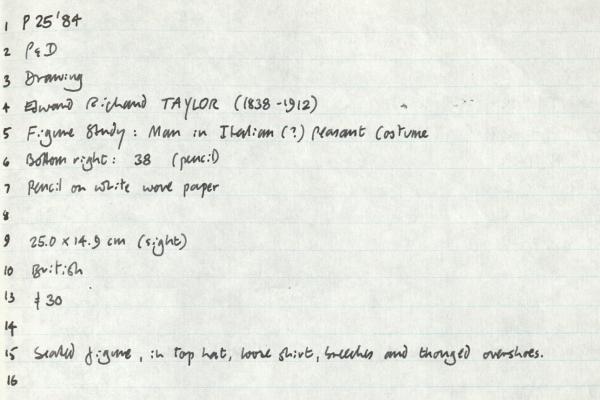 1 P 25'84
2 P&D
3 Drawing
4 Edward Richard TAYLOR (1838-1912)
5 Figure Study: Man in Italian (?) Peasant Costume
6 Bottom right: 38 (pencil)
7 Pencil on white wove paper
8
9 25.0 x 14.9 cm (sight)
10 British
13 £30
14
15 Seated figure, in top hat, loose shirt, breeches and thonged overshoes.
16